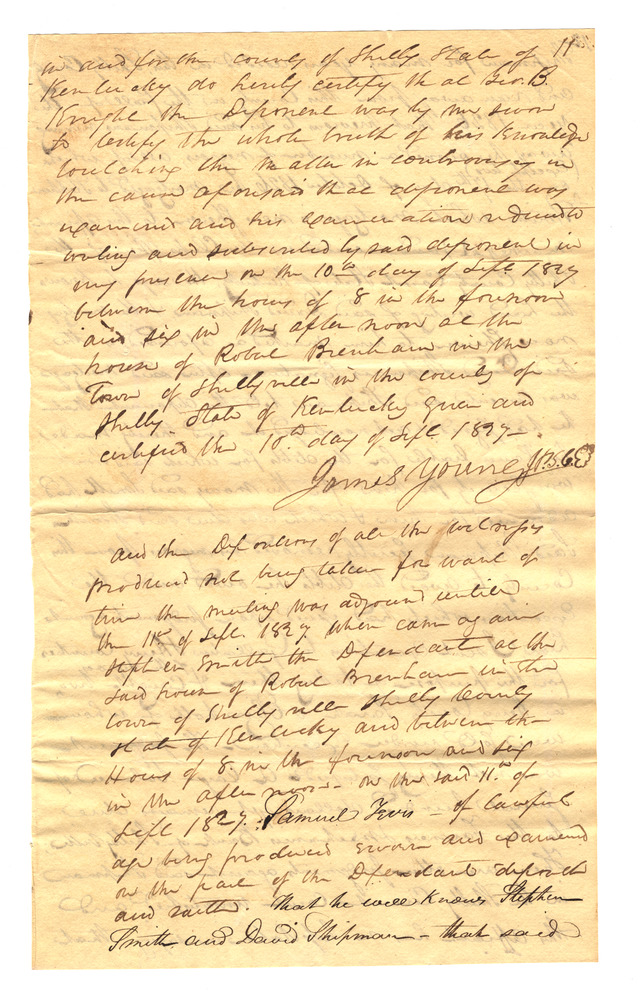 11
in and for the county of Shelby State of
Kentucky do hereby certify that Geo. B.
Knight the Deponent was by me sworn
to testify the whole truth of his Knowledge
touching the matter in controversy in
the cause aforesaid that deponent was
examined and his examination reduced to
writing and subscribed by said deponent in
my presence on the 10th day of Sept. 1827
between the hours of 8 in the forenoon
and six in the after noon at the
house of Robert Brenham in the
Town of Shelbyville in the county of
Shelby State of Kentucky given and
certified the 10th day of Sept 1827 -
James Young
and the Depositions of all the witnesses
produced not being taken for want of
time the meeting was adjournd untill
the 11th of Sept. 1827 when came again
Stephen Smith the Defendant at the
said house of Robert Brenham in the
town of Shelbyville Shelby County
State of Kentucky and between the
Hours of 8. in the forenoon and six
in the after noon - on the said 11th of
Sept 1827. Samuel Tevis - of lawful
age being produced sworn and examined
on the part of the Defendant deposeth
and saith. That he well knows Stephen
Smith and David Shipman - that said